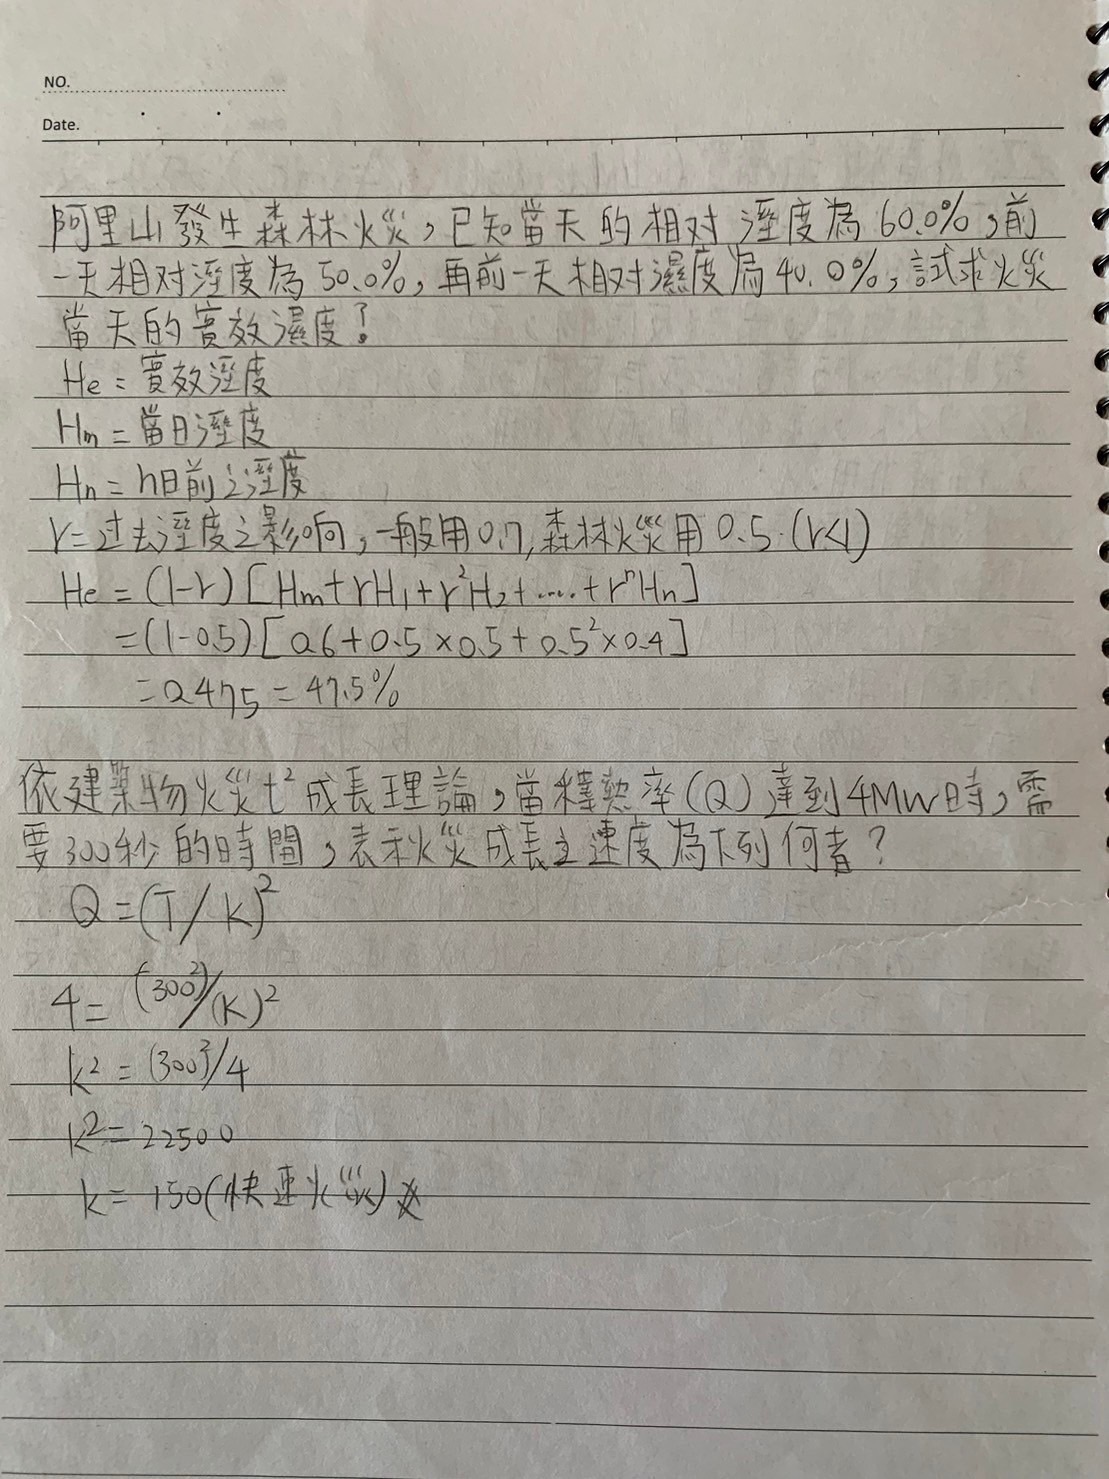 NO.
Date.
阿里山發生森林火災，已知當天的相对溼度為60.0%，前
一天相对溼度為50.0%，再前一天相对濕度為40.0%，試求火災
當天的實效濕度？
He = 實效溼度
Hm = 當日溼度
Hn = n日前之溼度
r = 过去溼度之影响，一般用0.7，森林火災用0.5.(r<1)
He = (1-r) [Hm+rH₁+r²H₂+.....+rⁿHn]
= (1-0.5) [0.6+0.5×0.5+0.5²×0.4]
= 0.475 = 47.5%
依建築物火災t²成長理論，當釋熱率(Q)達到4MW時，需
要300秒的時間，表示火災成長之速度為下列何者？
Q = (T/K)²
4 = (300²)/(K)²
k² = (300)²/4
k² = 22500
k = 150(快速火災)